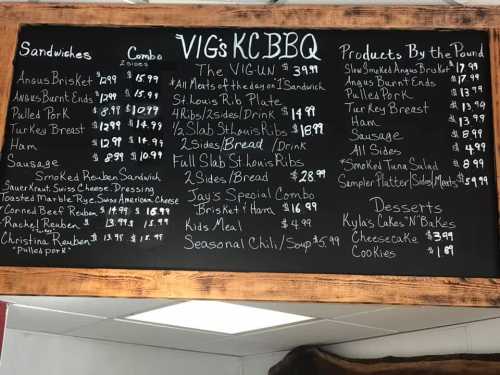 VIG's KC BBQ
Sandwiches Combo
2 sides
Angus Brisket $12.99 $15.99
Angus Burnt Ends $12.99 $15.99
Pulled Pork $8.99 $10.99
Turkey Breast $12.99 $14.99
Ham $12.99 $14.99
Sausage $8.99 $10.99
Smoked Reuben Sandwich
Sauerkraut, Swiss Cheese, Dressing
Toasted Marble Rye, Swiss American Cheese
Corned Beef Reuben $14.99 $16.99
Rachel Reuben $13.95 $15.95
Christina Reuben $13.95 $15.95
"Pulled Pork"
The VIG-UN $39.99
*All Meats of the day on 1 Sandwich
St Louis Rib Plate
4 Ribs/2 Sides/Drink $14.99
1/2 Slab St Louis Ribs $18.99
2 Sides/Bread/Drink
Full Slab St Louis Ribs
2 Sides/Bread $28.99
Jay's Special Combo
Brisket & Ham $16.99
Kids Meal $4.99
Seasonal Chili/Soup $5.99
Products By the Pound
Slow Smoked Angus Brisket $17.99
Angus Burnt Ends $17.99
Pulled Pork $13.99
Turkey Breast $13.99
Ham $13.99
Sausage $8.99
All Sides $4.99
*Smoked Tuna Salad $8.99
Sampler Platter/Sides/Meats $59.99
Desserts
Kyla's Cakes "N" Bakes
Cheesecake $3.99
Cookies $1.89